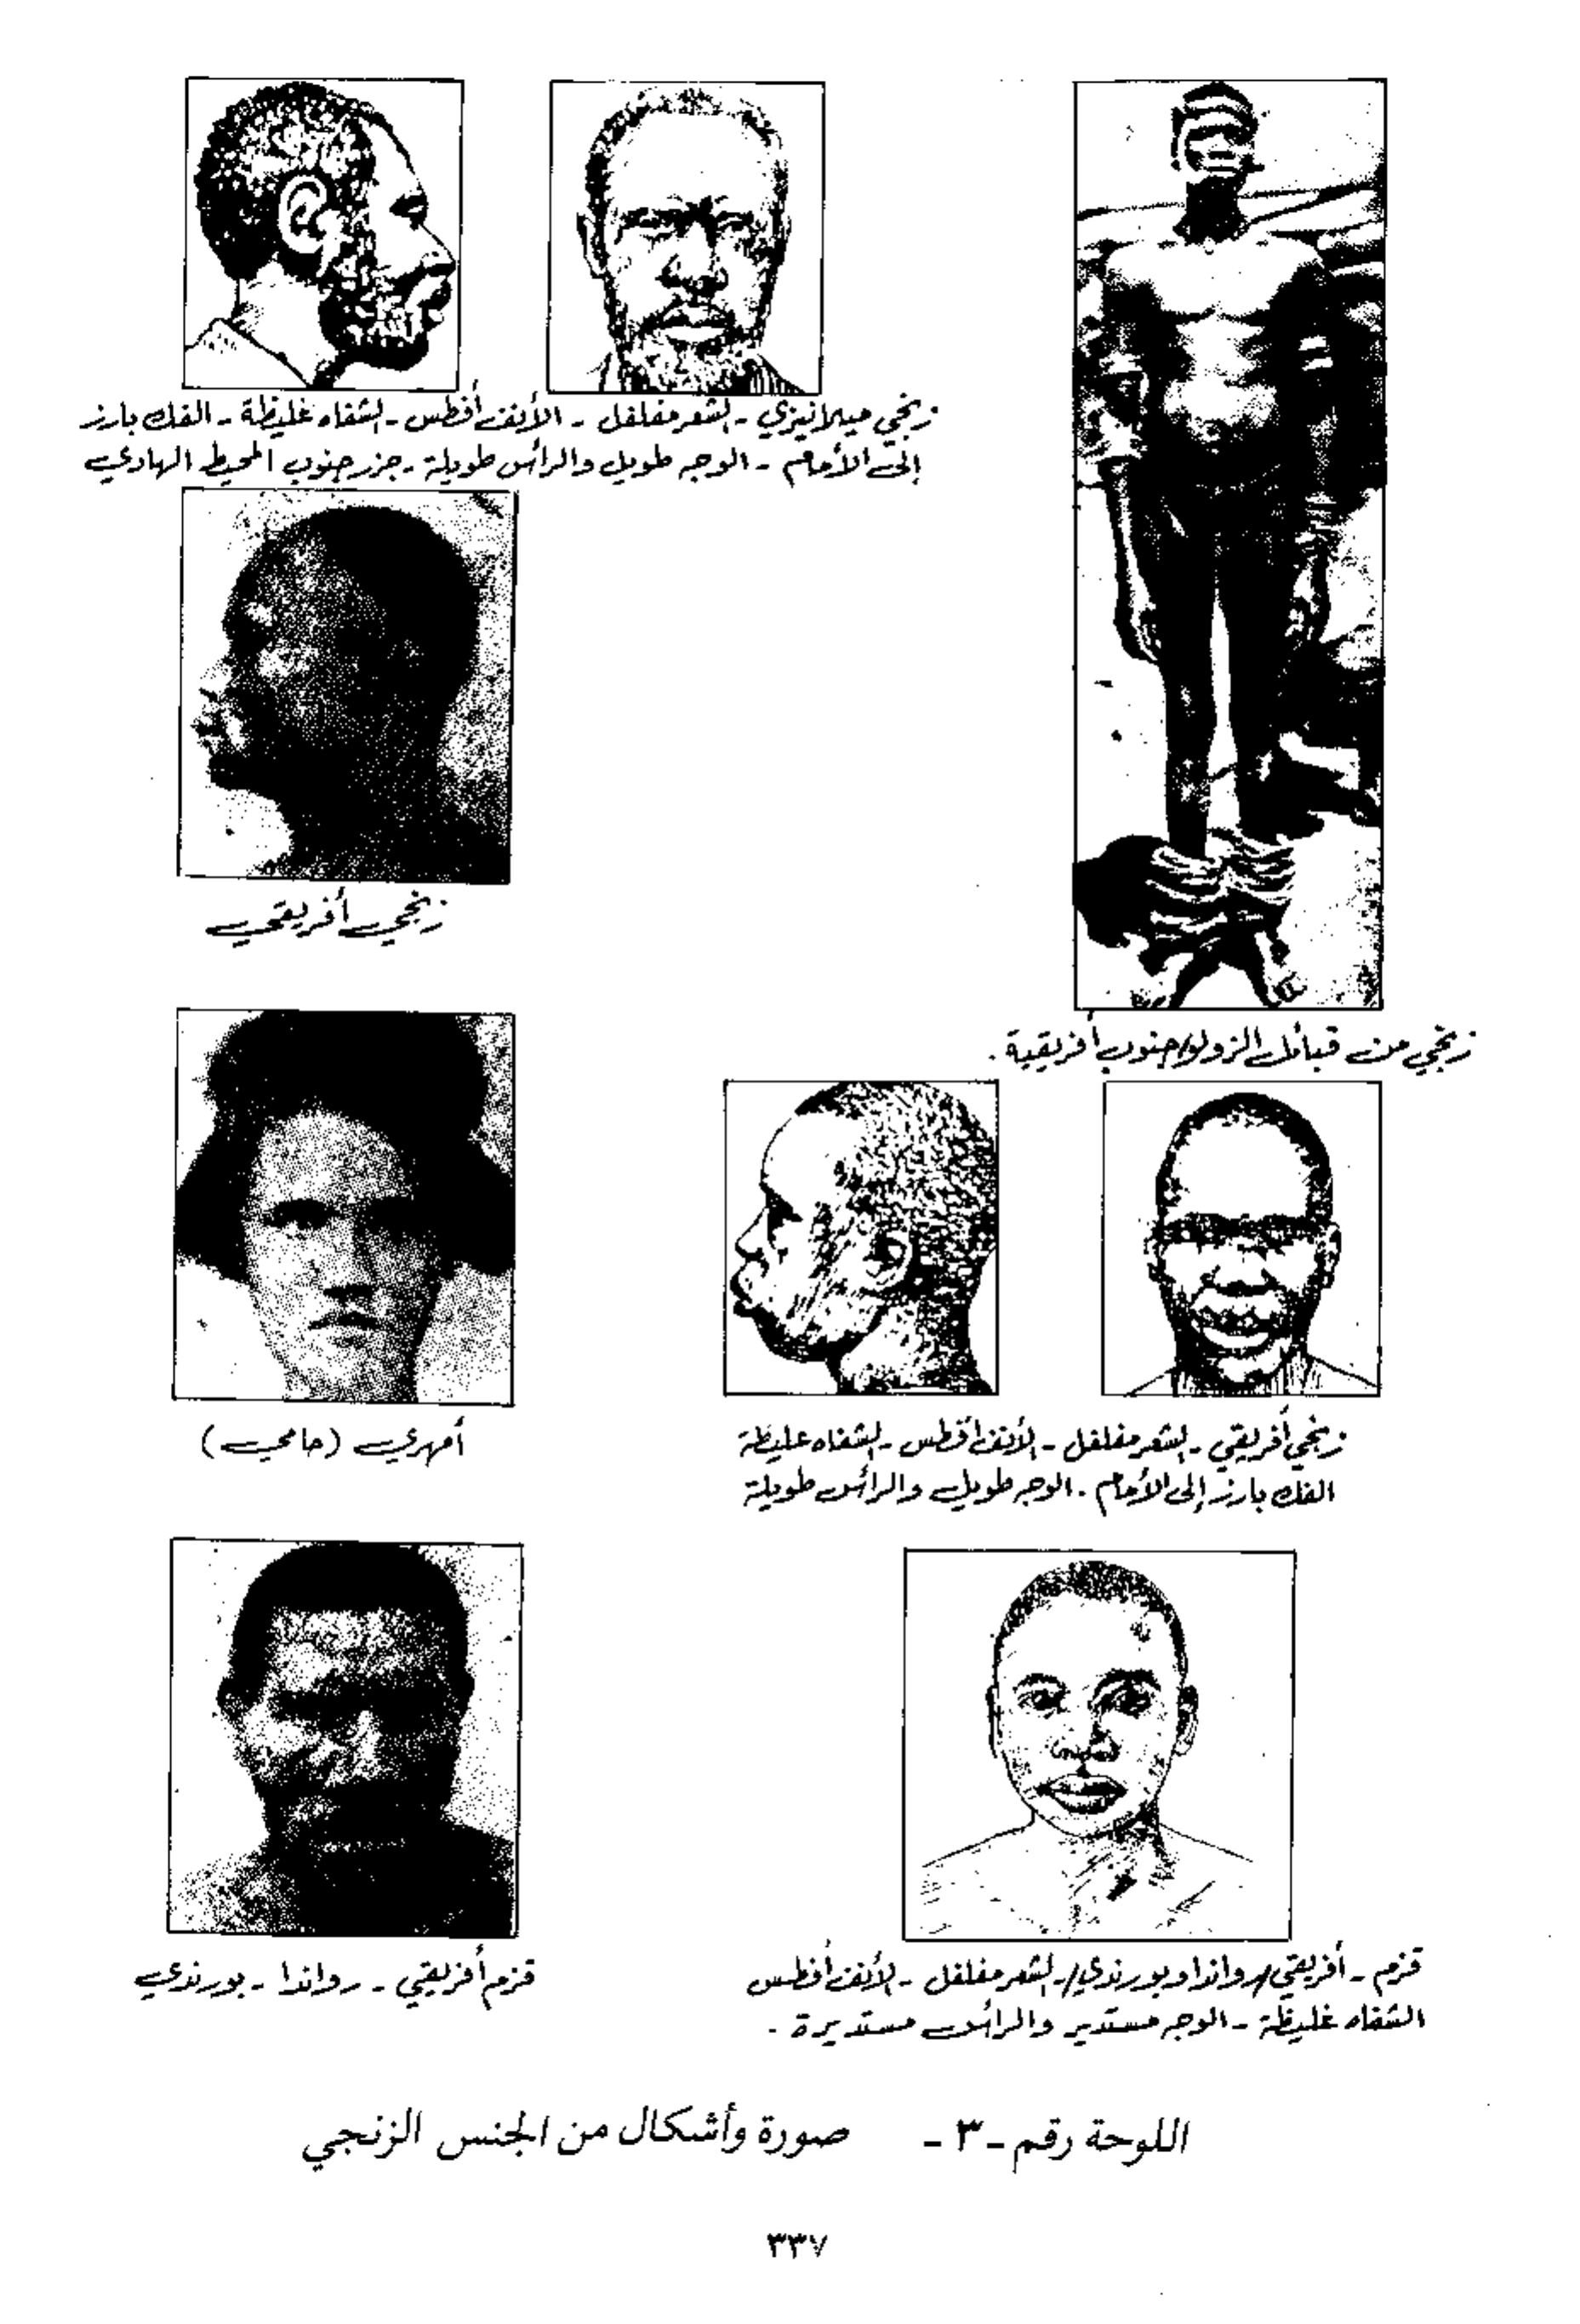 زنجي ميلانيزي - الشعر مفلفل - الأنف أفطس - الشفاه غليظة - الفك بارز
إلى الأمام - الوجه طويل والرأس طويلة - جزر جنوب المحيط الهادي
زنجي أفريقي
زنجي من قبائل الزولو/جنوب أفريقية .
أمهري (حامي)
زنجي أفريقي - الشعر مفلفل - الأنف أفطس - الشفاه غليظة
الفك بارز إلى الأمام - الوجه طويل والرأس طويلة
قزم أفريقي - رواندا - بورندي
قزم - أفريقي/رواندا وبورندي/ - الشعر مفلفل - الأنف أفطس
الشفاه غليظة - الوجه مستدير والرأس مستديرة -
اللوحة رقم - ٣ - صورة وأشكال من الجنس الزنجي
٣٣٧